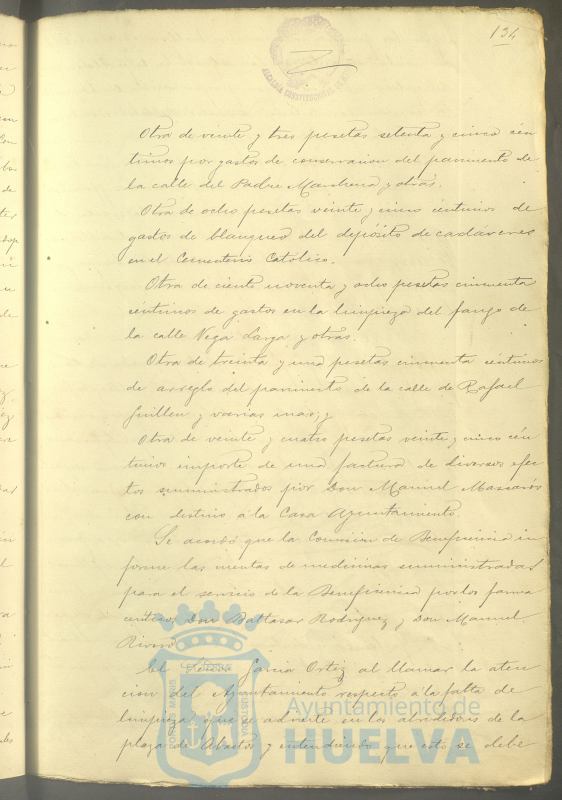 134
ALCALDIA CONSTITUCIONAL
Otra de veinte y tres pesetas setenta y cinco cén
timos por gastos de conservacion del pavimento de
la calle del Padre Marchena y otras.
Otra de ocho pesetas veinte y cinco céntimos de
gastos de blanqueo del depósito de cadáveres
en el Cementerio Católico.
Otra de ciento noventa y ocho pesetas cincuenta
céntimos de gastos en la limpieza del fango de
la calle Vega Larga y otras.
Otra de treinta y una pesetas cincuenta céntimos
de arreglo del pavimento de la calle de Rafael
Guillen y varias mas; y
Otra de veinte y cuatro pesetas veinte y cinco cén
timos importe de una factura de diversos efec
tos suministrados por Don Manuel Mascarós
con destino a la Casa Ayuntamiento.
Se acordó que la Comision de Beneficencia in
forme las cuentas de medicinas suministradas
para el servicio de la Beneficencia por los farma
ceuticos Don Baltasar Rodriguez y Don Manuel
Rivero
El Señor Garcia Ortiz al llamar la aten
cion del Ayuntamiento respecto a la falta de
limpieza que se advierte en los alrededores de la
plaza de Abastos y entendiendo que esto se debe
Ayuntamiento de
HUELVA